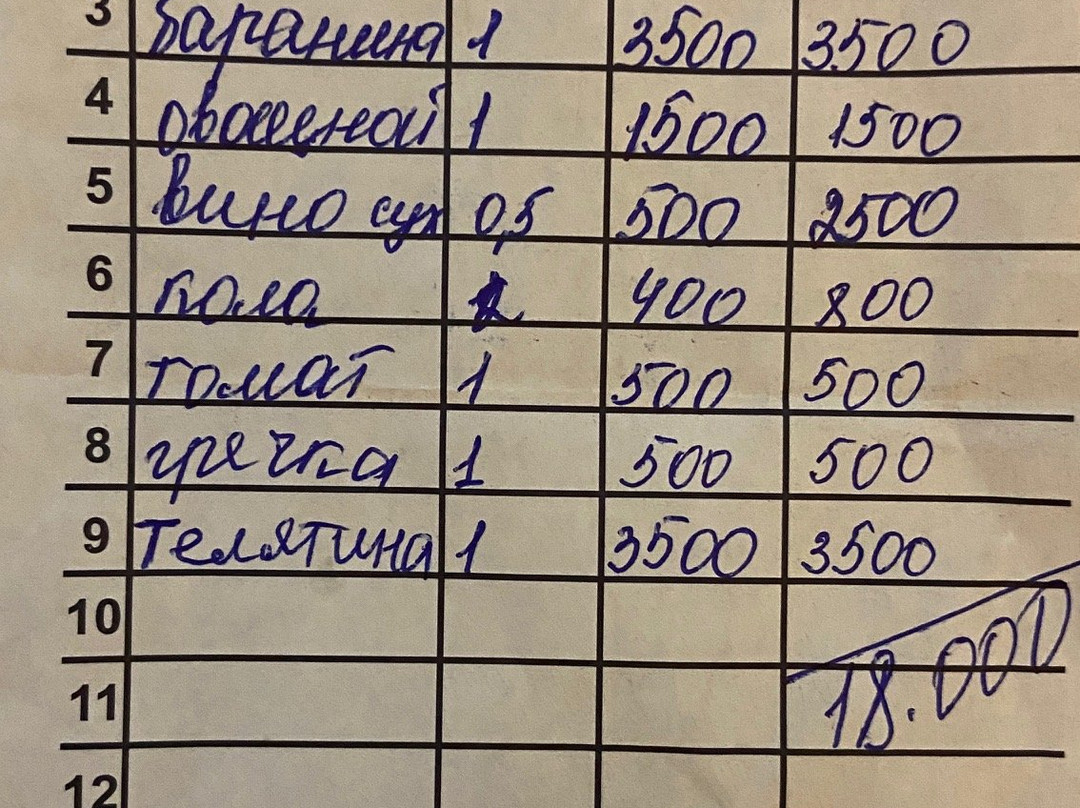 3 Баранина 1 3500 3500
4 овощной 1 1500 1500
5 Вино сух 0,5 500 2500
6 кола 2 400 800
7 томат 1 500 500
8 гречка 1 500 500
9 Телятина 1 3500 3500
10
18.000
11
12